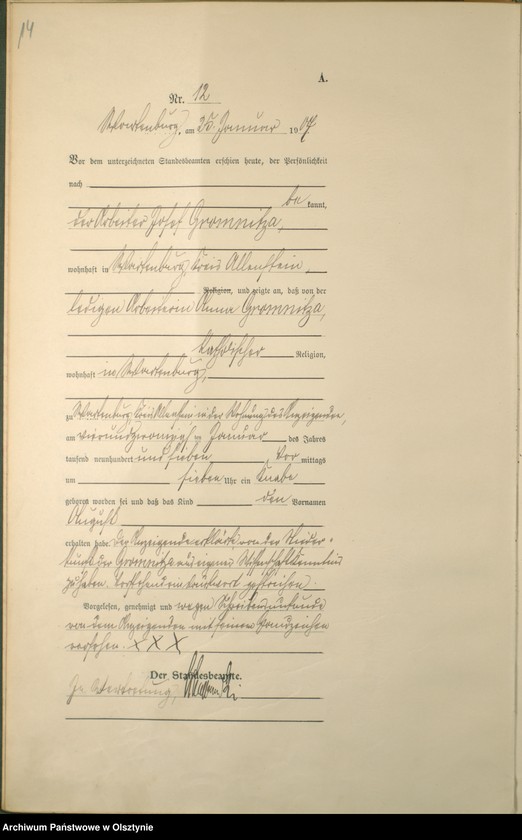 14
A.
Nr. 12
Wartenburg, am 25. Januar 1907
Vor dem unterzeichneten Standesbeamten erschien heute, der Persönlichkeit
nach
be kannt,
der Arbeiter Josef Gromnitza,
wohnhaft in Wartenburg, Kreis Allenstein,
Religion, und zeigte an, daß von der
ledigen Arbeiterin Anna Gromnitza,
katholischer Religion,
wohnhaft in Wartenburg,
zu Wartenburg, Kreis Allenstein in der Wohnung des Anzeigenden,
am vierundzwanzigsten Januar des Jahres
tausend neunhundert und sieben, Vor mittags
um sieben Uhr ein Knabe
geboren worden sei und daß das Kind den Vornamen
August
erhalten habe. Der Anzeigende erklärt, von der Nieder-
kunft der Gromnitza aus eigener Wissenschaft Kenntnis
zu haben. Vorstehend ein Druckwort gestrichen.
Vorgelesen, genehmigt und wegen Schreibensunkunde
von dem Anzeigenden mit seinem Handzeichen
versehen. XXX
Der Standesbeamte.
In Vertretung,
Archiwum Państwowe w Olsztynie